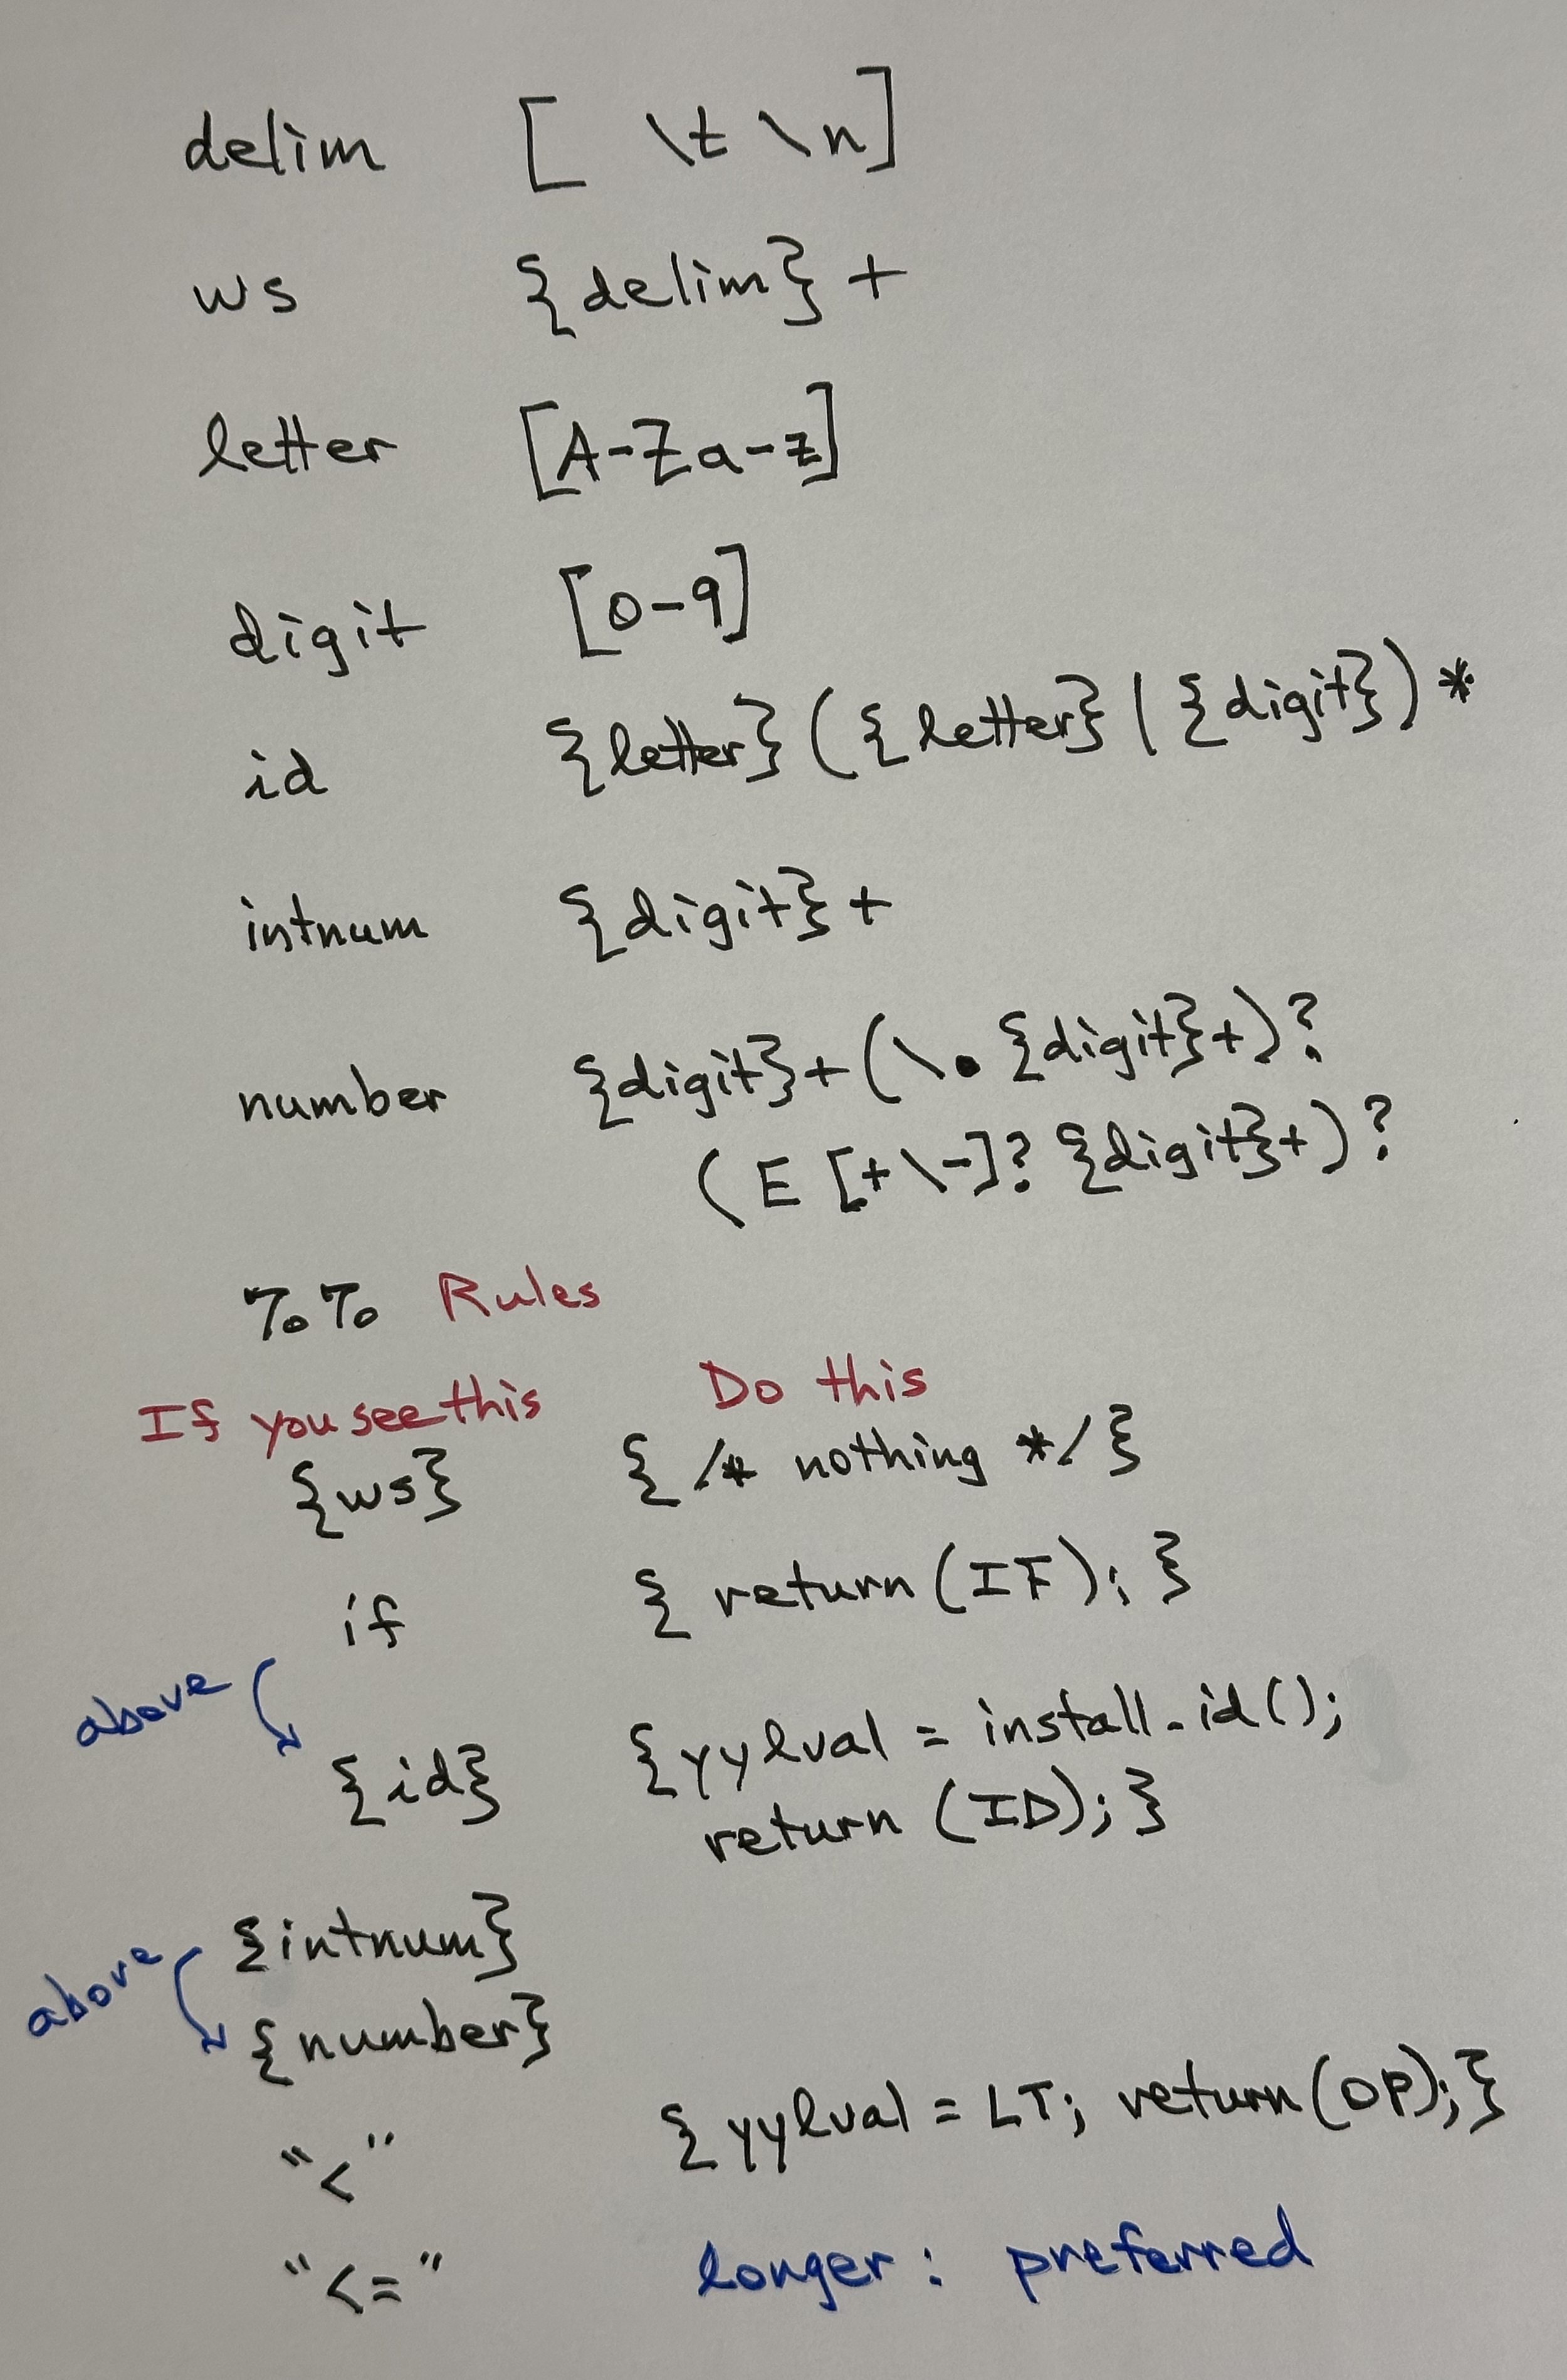 delim [ \t \n]
ws {delim} +
letter [A-Za-z]
digit [0-9]
id {letter}({letter} | {digit})*
intnum {digit}+
number {digit}+(\. {digit}+)?
(E [+\-]? {digit}+)?
%% Rules
If you see this Do this
{ws} { /* nothing */}
if { return (IF); }
above
{id} {yylval = install_id();
return (ID);}
{intnum}
above
{number}
"<" {yylval = LT; return(OP);}
"<=" longer: preferred